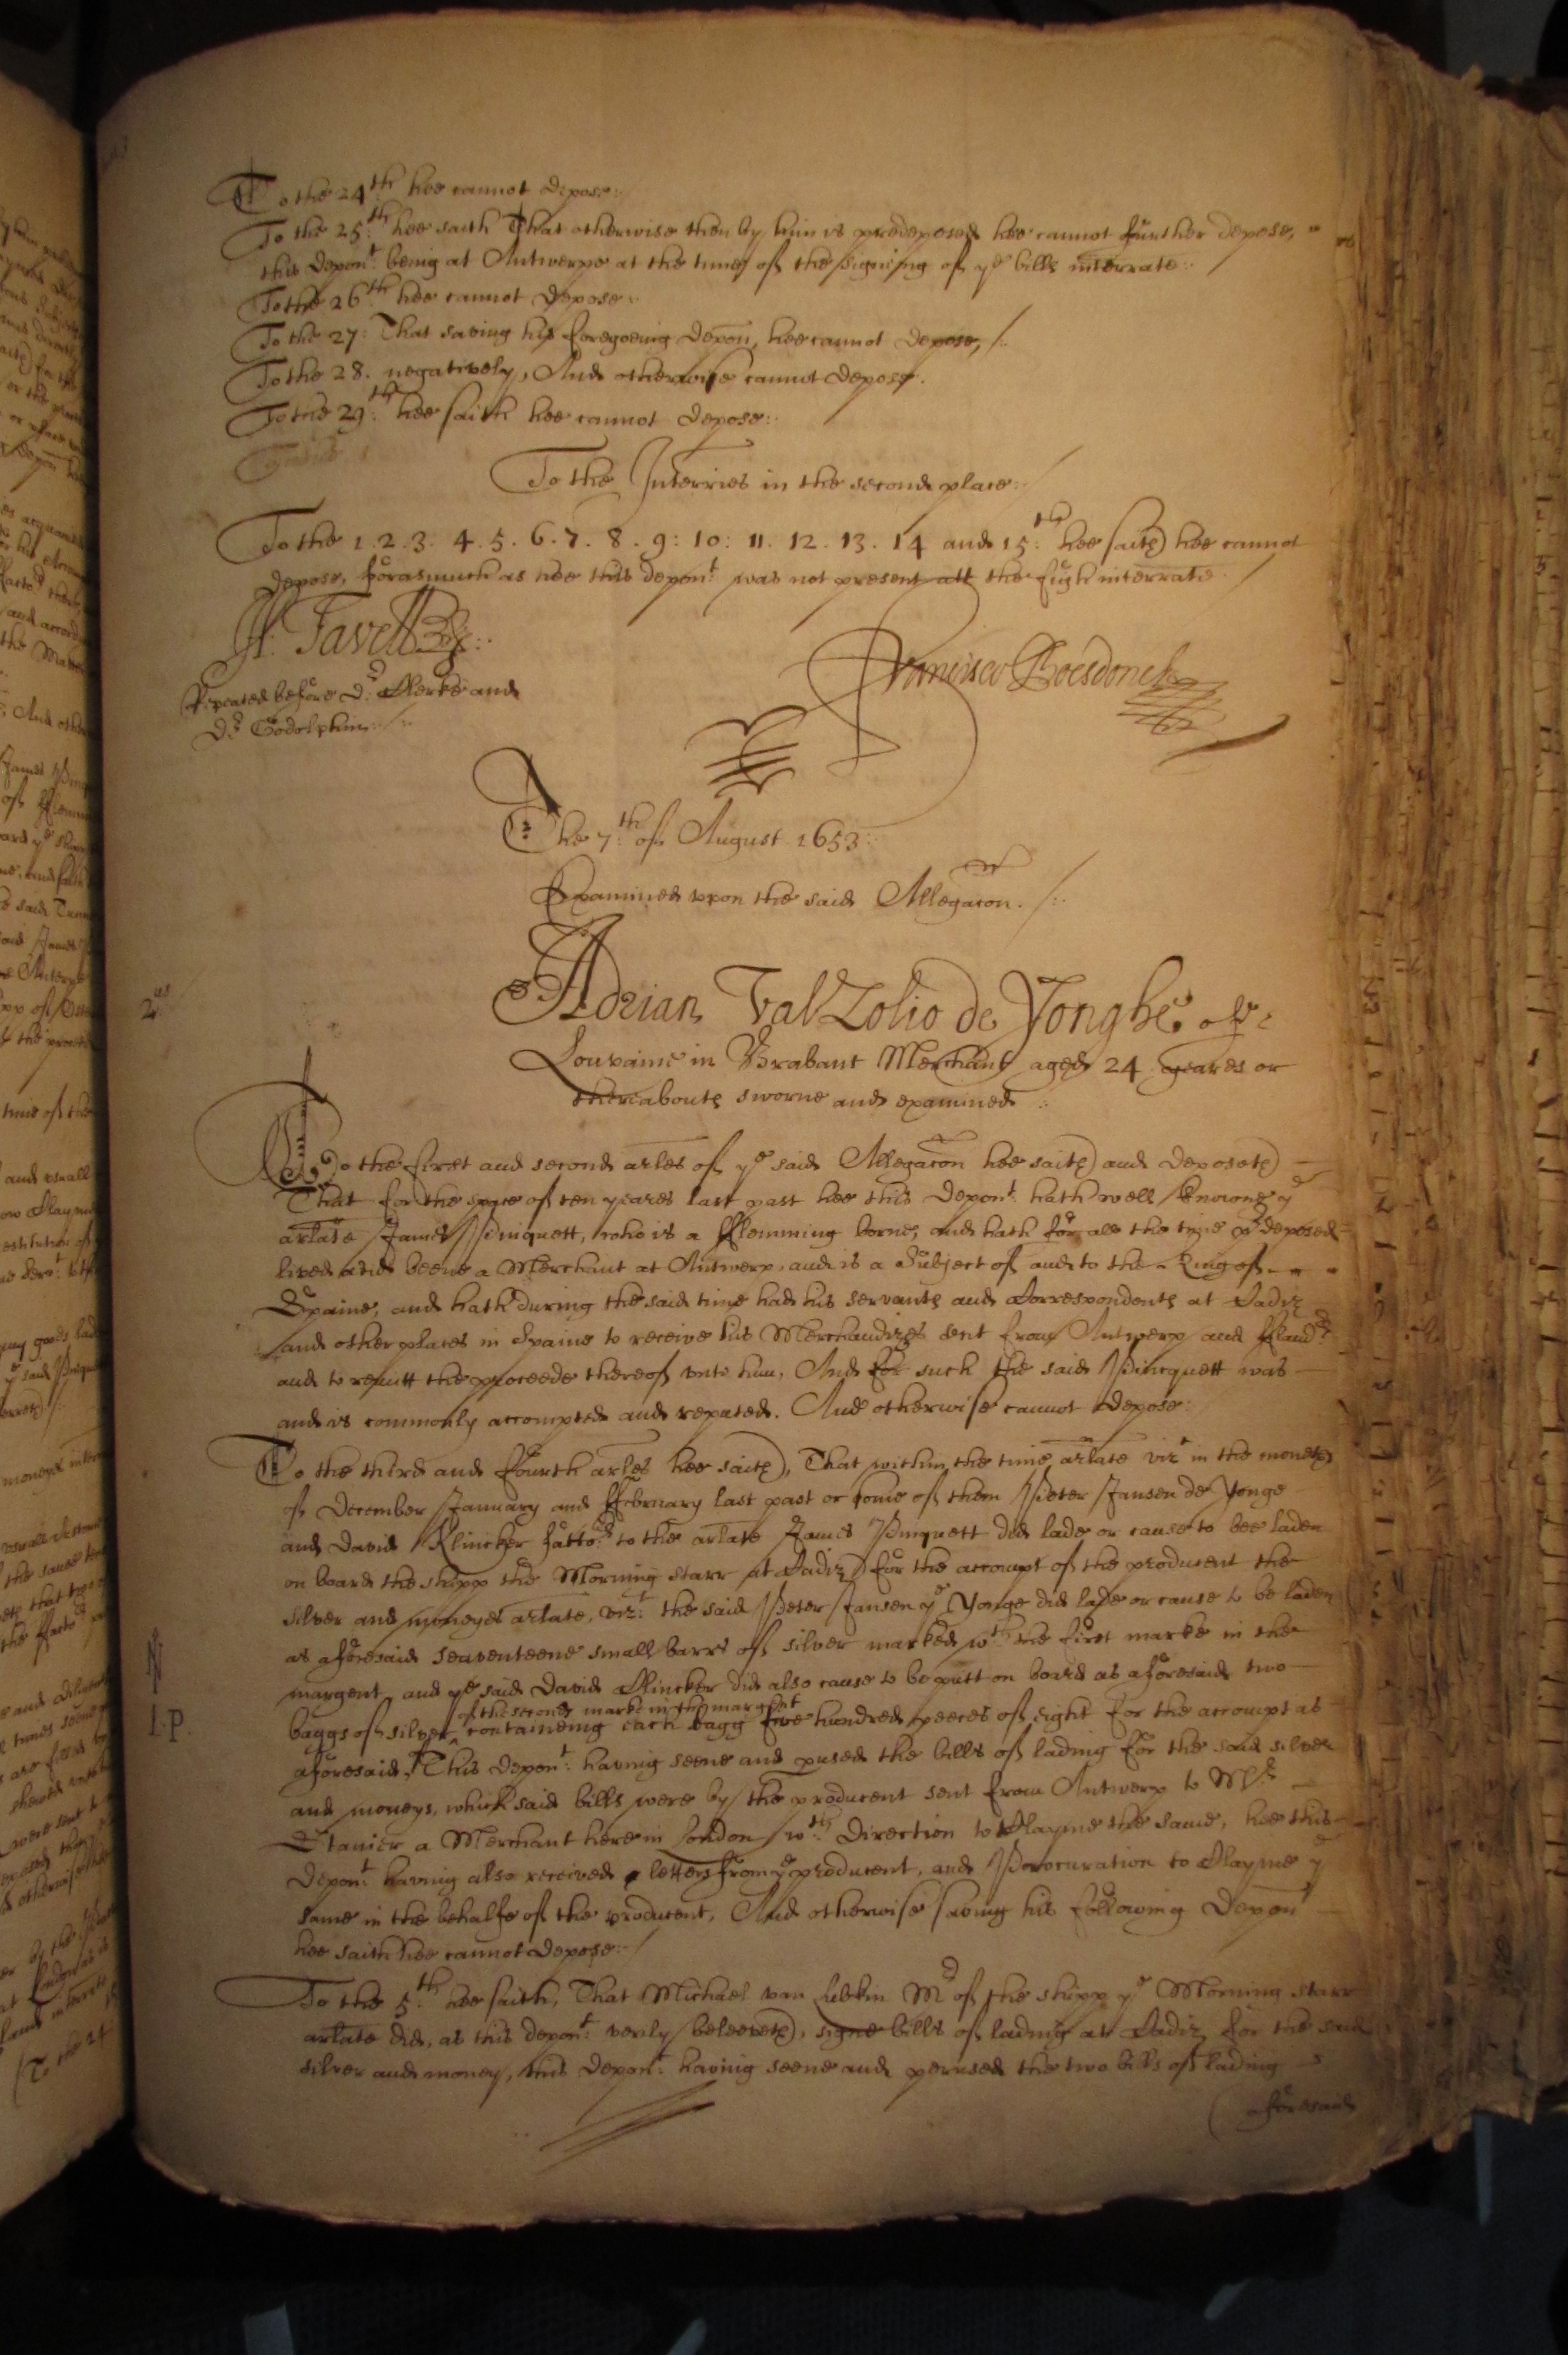 To the 24th hee cannot depose:
To the 25:th hee saith That otherwise then by him is predeposed hee cannot further depose,
this depont: being at Antwerpe at the time of the signing of ye bills interrate:
To the 26th hee cannot depose:
To the 27: That saving his foregoeing depon, hee cannot depose,
To the 28. negatively, And otherwise cannot depose.
To the 29:th hee saith hee cannot depose:
To the Interries in the second place:
To the 1. 2. 3. 4. 5. 6. 7. 8. 9: 10: 11. 12. 13. 14 and 15:th hee saith hee cannot
depose, forasmuch as hee this depont was not present att the fight interrate
Repeated before Dr: Clerke and
Dr Godolphin:
Francisco Boesdonck
The 7:th of August 1653:
Examined upon the said Allegacon.
2us
Adrian Val Zolio de Yonghe of
Louvaine in Brabant Merchant aged 24 yeares or
thereabouts sworne and examined:
To the first and second arles of ye said Allegacon hee saith and deposeth
That for the space of ten yeares last past hee this depont: hath well knowne ye
arlate James Pincquett, who is a fflemming borne, and hath for all the time predeposed
lived and beene a Merchant at Antwerp, and is a Subject of and to the King of
Spaine, and hath during the said time had his servants and Correspondents at Cadiz
and other places in Spaine to receive his Merchandizes sent from Antwerp and ffland:rs
and to remitt the proceede thereof unto him, And for such the said Pincquett was
and is commonly accompted and reputed. And otherwise cannot depose:
To the third and fourth arles hee saith, That within the time arlate vizt in the moneths
of December January and ffebruary last past or some of them Peter Jansen de Yonge
and David Klincker factors to the arlate James Pinquett did lade or cause to bee laden
on board the shipp the Morning starr at Cadiz for the accompt of the producent the
silver and moneyes arlate, vizt: the said Peter Jansen ye Yonge did lade or cause to be laden
as aforesaid seaventeene small barrs of silver marked wth the first marke in the
margent, and ye said David Clincker did also cause to be putt on board as aforesaid two
of the second marke in the margent
I. P.
baggs of silver ^ containeing each bagg five hundred peeces of eight for the accompt as
aforesaid, This depont: having seene and pused the bills of lading for the said silver
and moneys, which said bills were by the producent sent from Antwerp to Mr
Stanier a Merchant here in London wth: direction to Clayme the same, hee this
depont having also received letters from ye producent, and Procuration to Clayme ye
same in the behalfe of the producent, And otherwise saving his following depon
hee saith hee cannot depose:
To the 5:th hee saith, That Michael van Lubkin Mr of the shipp ye Morning starr
arlate did, as this depont: verily beleeveth, signe bills of lading at Cadiz for the said
silver and money, this depont: having seene and perused the two bills of lading
aforesaid